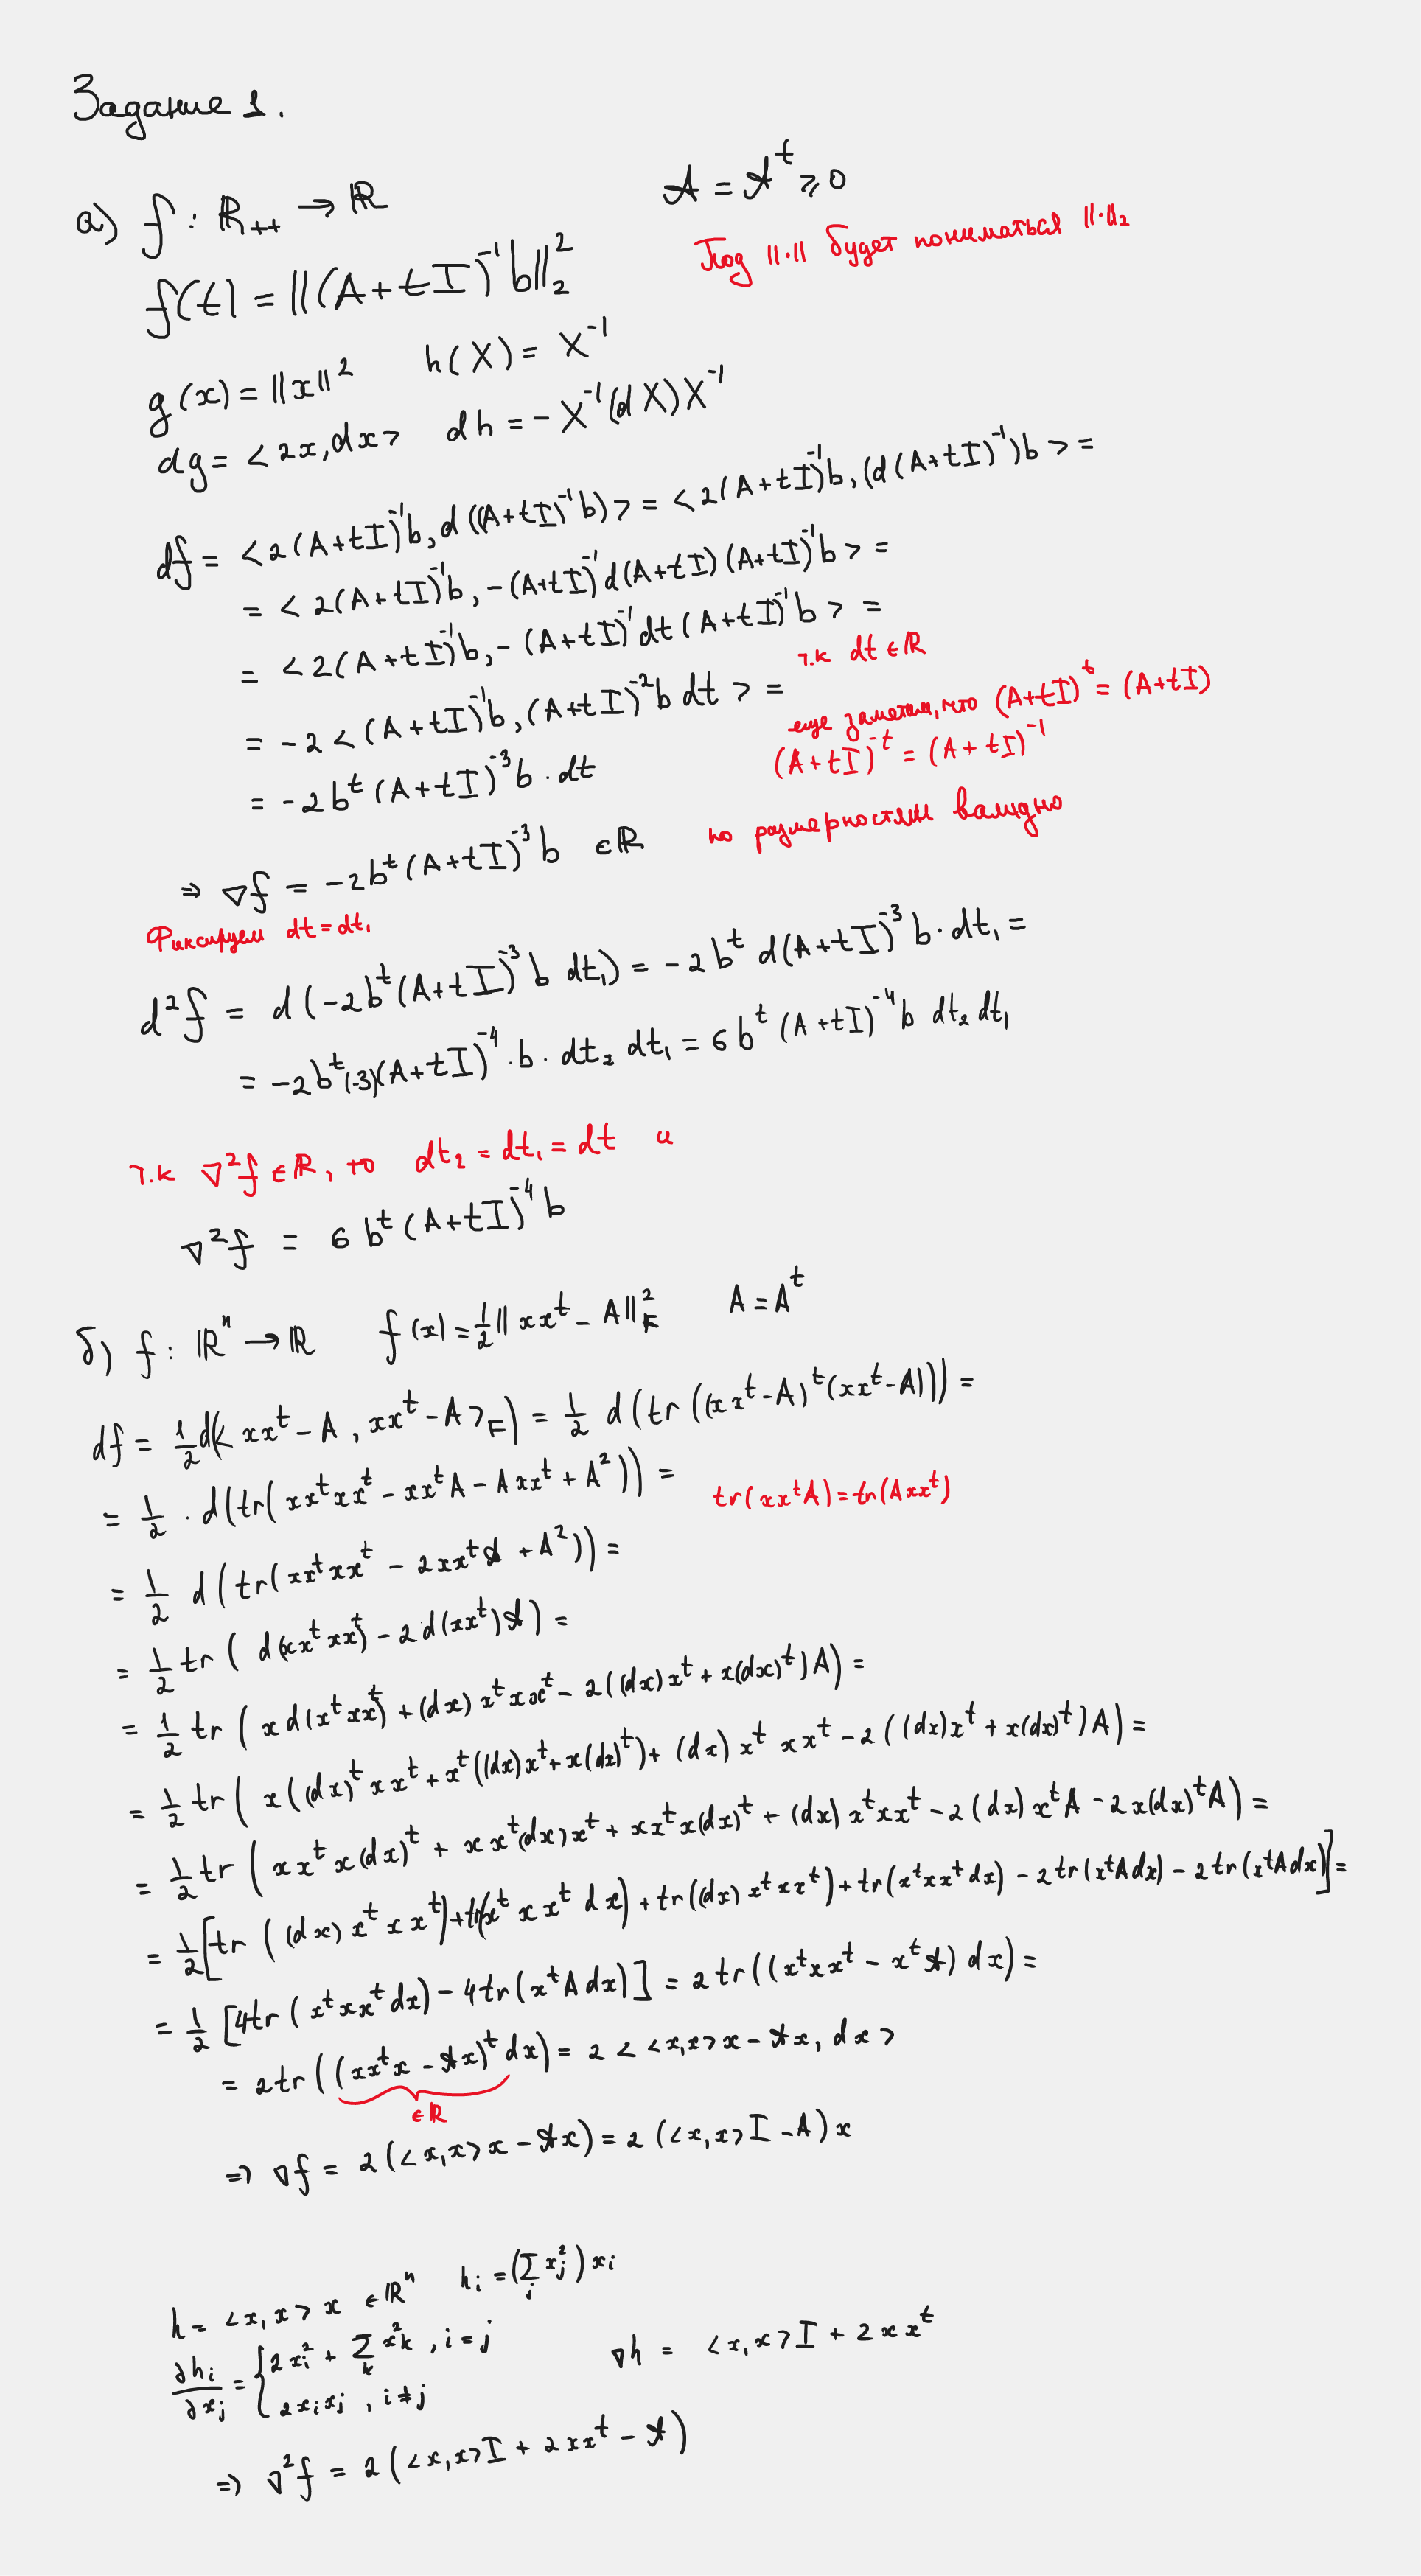 Задание 1.
а) f : ℝ₊₊ → ℝ    A = Aᵗ ⩾ 0
f(t) = ||(A+tI)⁻¹b||₂²    Под ||·|| будет пониматься ||·||₂
g(x) = ||x||²    h(X) = X⁻¹
dg = <2x, dx>    dh = −X⁻¹(dX)X⁻¹
df = <2(A+tI)⁻¹b, d((A+tI)⁻¹b)> = <2(A+tI)⁻¹b, (d(A+tI)⁻¹)b> =
= <2(A+tI)⁻¹b, −(A+tI)⁻¹d(A+tI)(A+tI)⁻¹b> =
= <2(A+tI)⁻¹b, −(A+tI)⁻¹dt(A+tI)⁻¹b> =
т.к dt ∈ ℝ
= −2<(A+tI)⁻¹b, (A+tI)⁻²b dt> =    еще заметим, что (A+tI)ᵗ = (A+tI)
(A+tI)⁻ᵗ = (A+tI)⁻¹
= −2bᵗ(A+tI)⁻³b · dt
⇒ ∇f = −2bᵗ(A+tI)⁻³b ∈ℝ    по размерностям валидно
Фиксируем dt = dt₁
d²f = d(−2bᵗ(A+tI)⁻³b dt₁) = −2bᵗ d(A+tI)⁻³b · dt₁ =
= −2bᵗ(-3)(A+tI)⁻⁴ · b · dt₂ dt₁ = 6bᵗ(A+tI)⁻⁴b dt₂ dt₁
т.к ∇²f ∈ ℝ, то dt₂ = dt₁ = dt и
∇²f = 6bᵗ(A+tI)⁻⁴b
б) f : ℝⁿ → ℝ    f(x) = 1/2||xxᵗ − A||²_F    A = Aᵗ
df = 1/2 d(<xxᵗ − A, xxᵗ − A>_F) = 1/2 d(tr((xxᵗ−A)ᵗ(xxᵗ−A))) =
= 1/2 · d(tr(xxᵗxxᵗ − xxᵗA − Axxᵗ + A²)) =
tr(xxᵗA) = tr(Axxᵗ)
= 1/2 d(tr(xxᵗxxᵗ − 2xxᵗA + A²)) =
= 1/2 tr(d(xxᵗxxᵗ) − 2d(xxᵗ)A) =
= 1/2 tr(x d(xᵗxxᵗ) + (dx)xᵗxxᵗ − 2((dx)xᵗ + x(dx)ᵗ)A) =
= 1/2 tr(x((dx)ᵗxxᵗ + xᵗ((dx)xᵗ + x(dx)ᵗ) + (dx)xᵗxxᵗ − 2((dx)xᵗ + x(dx)ᵗ)A) =
= 1/2 tr(xxᵗx(dx)ᵗ + xxᵗ(dx)xᵗ + xxᵗx(dx)ᵗ + (dx)xᵗxxᵗ − 2(dx)xᵗA − 2x(dx)ᵗA) =
= 1/2[tr((dx)xᵗxxᵗ) + tr(xᵗxxᵗdx) + tr((dx)xᵗxxᵗ) + tr(xᵗxxᵗdx) − 2tr(xᵗAdx) − 2tr(xᵗAdx)] =
= 1/2[4tr(xᵗxxᵗdx) − 4tr(xᵗAdx)] = 2tr((xᵗxxᵗ − xᵗA)dx) =
= 2tr((xxᵗx − Ax)ᵗdx) = 2<<x,x>x − Ax, dx>
∈ℝ
⇒ ∇f = 2(<x,x>x − Ax) = 2(<x,x>I − A)x
h = <x,x>x ∈ℝⁿ    hᵢ = (∑ⱼ xⱼ²)xᵢ
∂hᵢ/∂xⱼ = { 2xᵢ² + ∑ₖ x²k , i = j
2xᵢxⱼ , i ≠ j    ∇h = <x,x>I + 2xxᵗ
⇒ ∇²f = 2(<x,x>I + 2xxᵗ − A)